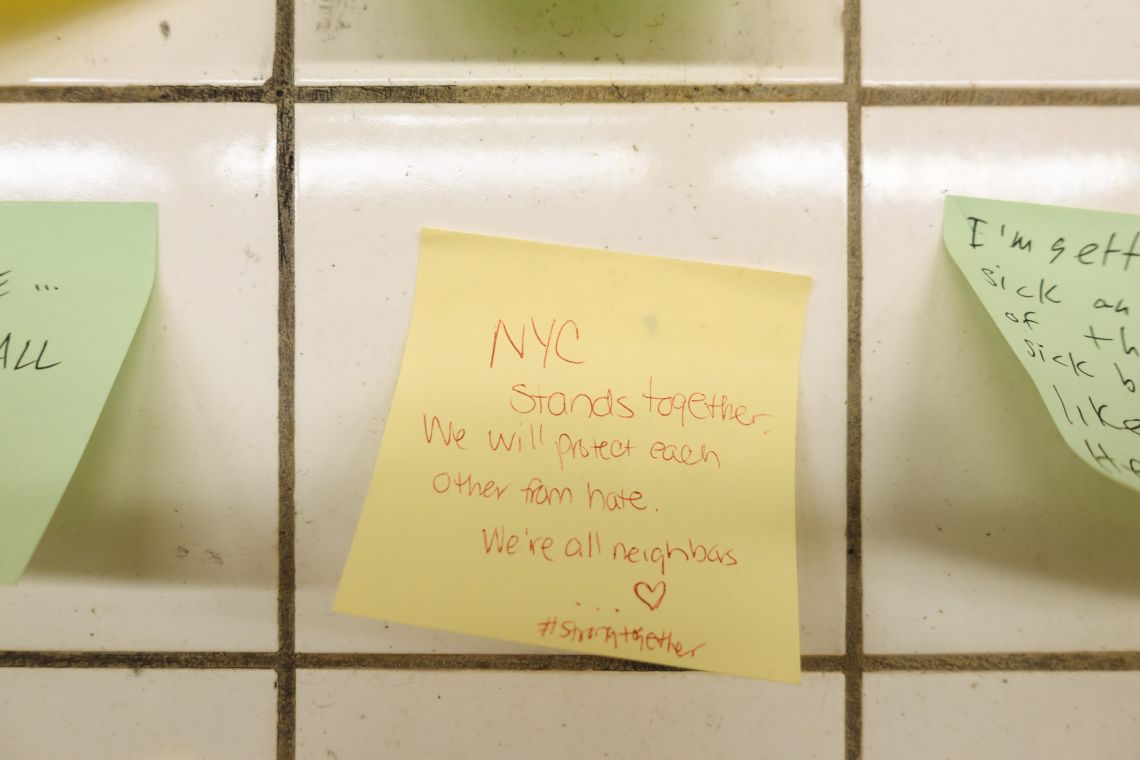 NYC
Stands together.
We will protect each
other from hate.
We're all neighbors
♡
#strongtogether
E ...
ALL
I'm gett
sick an
of th
sick b
like